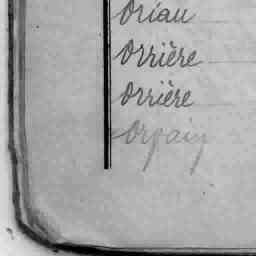 Oriau
Orrière
Orrière
Orpaiy